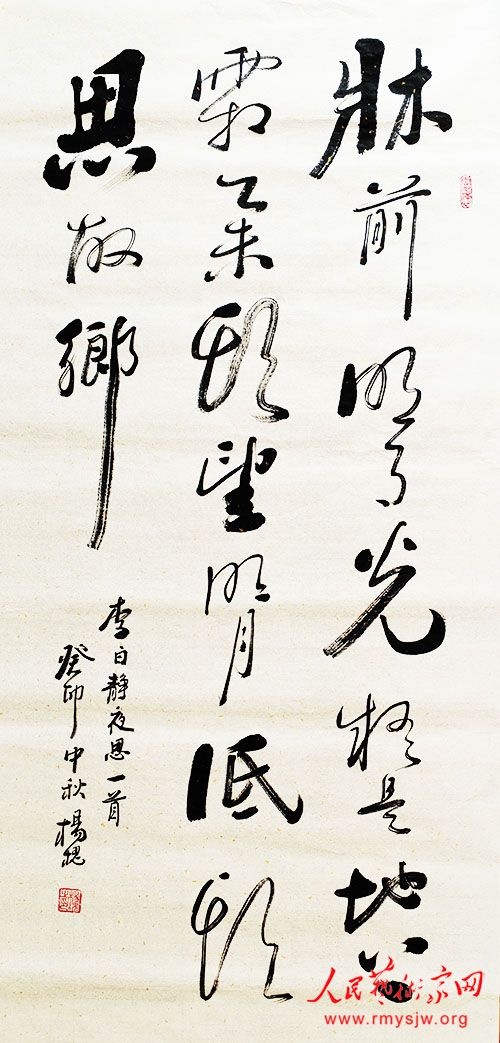 牀前明月光疑是地上
霜舉頭望明月低頭
思故鄉
李白靜夜思一首
癸卯中秋楊
人民藝術家网
www.rmysjw.org